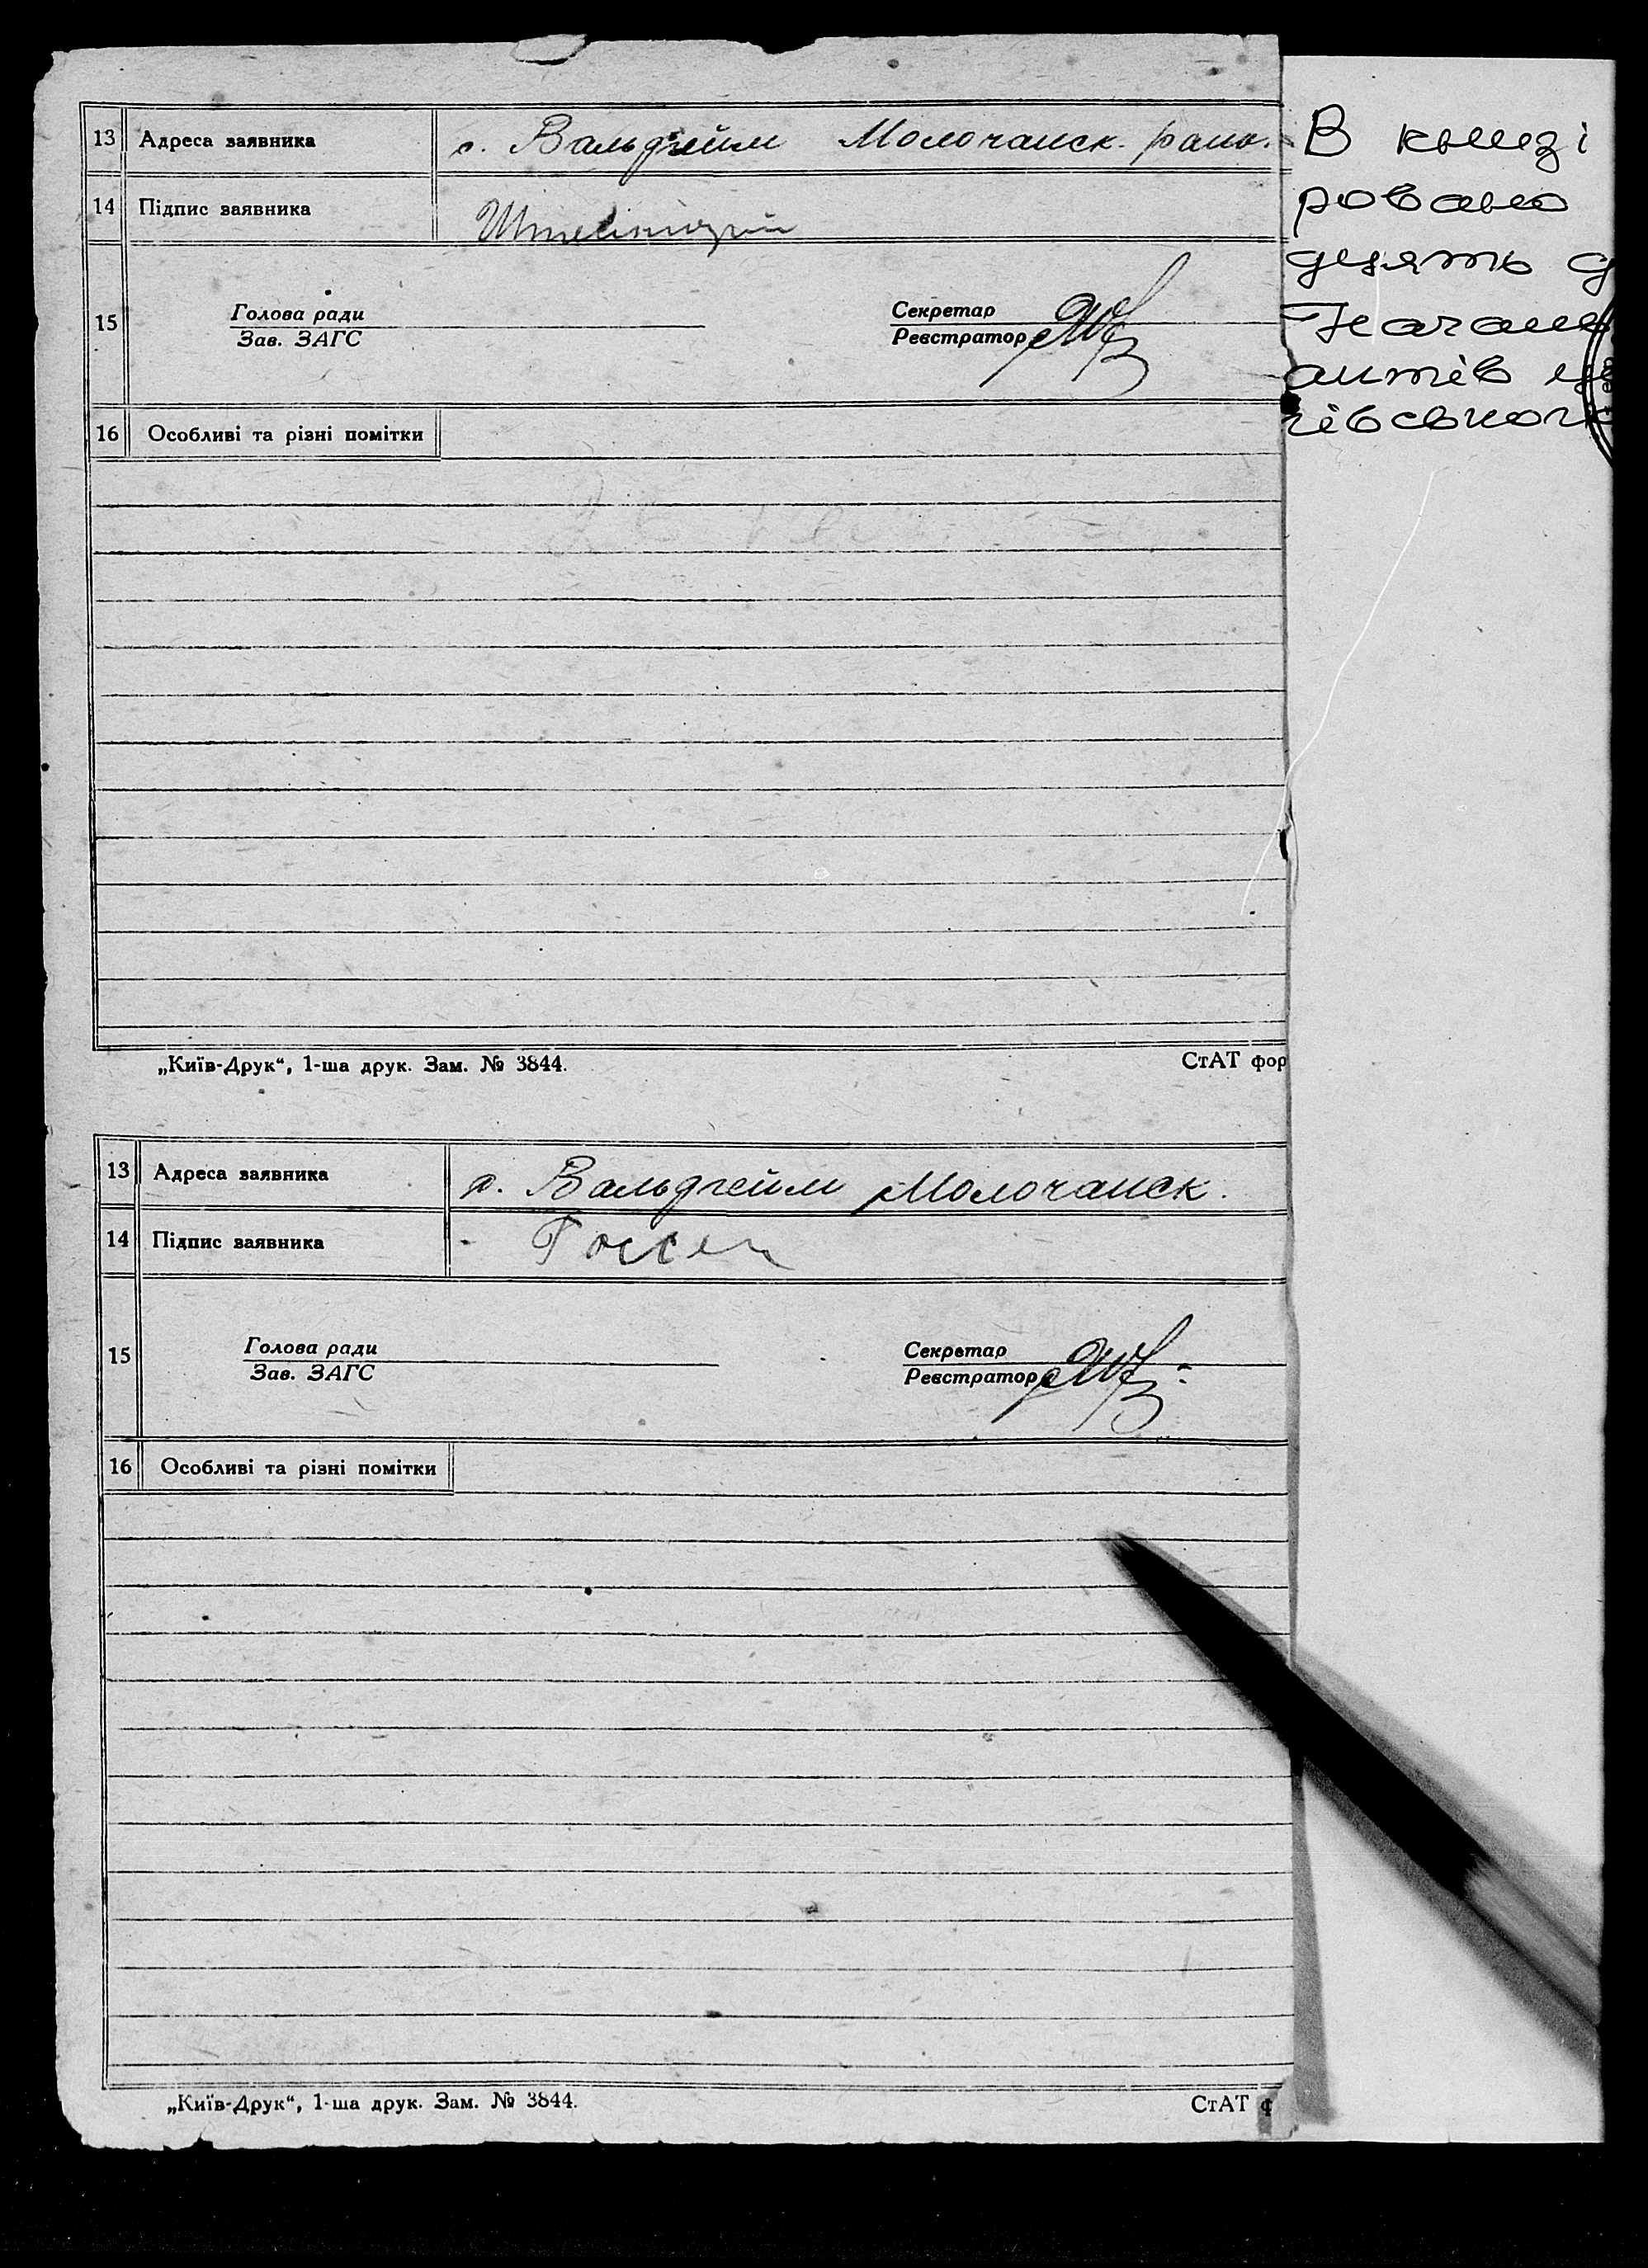 13 Адреса заявника с. Вальдгейм Молочанск. райо.
14 Підпис заявника
15 Голова ради Секретар
Зав. ЗАГС Реєстратор
16 Особливі та різні помітки
„Київ-Друк“, 1-ша друк. Зам. № 3844. СтАТ фор
13 Адреса заявника с. Вальдгейм Молочанск.
14 Підпис заявника Госсен
15 Голова ради Секретар
Зав. ЗАГС Реєстратор
16 Особливі та різні помітки
„Київ-Друк“, 1-ша друк. Зам. № 3844. СтАТ ф
В книзі
ровано
десять
Начальн
антів